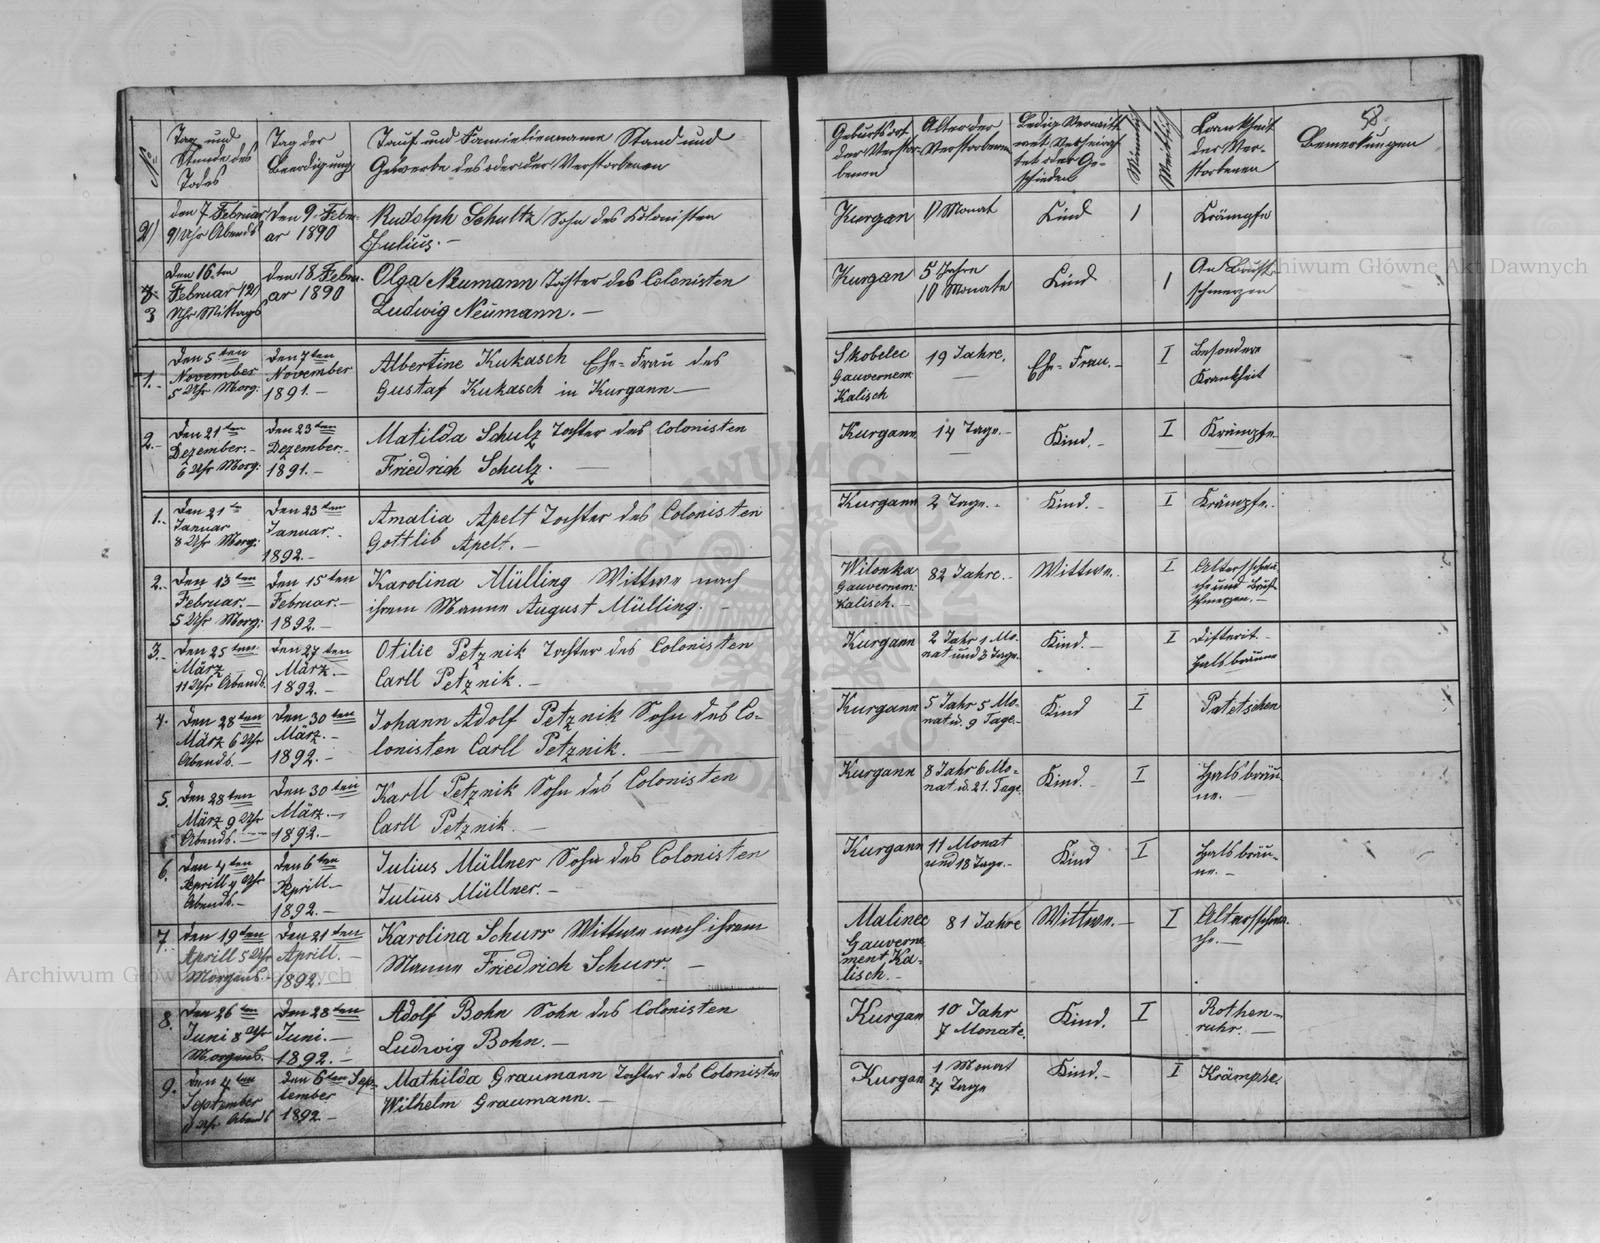 No
Tag und
Stunde des
Todes
Tag der
Beerdigung
Tauf und Familienname Stand und
Gewerbe des oder der Verstorbenen
Geburtsort
der Verstor-
benen
Alter der
Verstorbenen
Ledig Verwitt
wet Verheira
tet oder Ge-
schieden
Männlich
Weiblich
Krankheit
der Ver-
storbenen
Bemerkungen
58
2)
den 7 Februar
9 Uhr Abends
den 9. Febru-
ar 1890
Rudolph Schultz Sohn des Kolonisten
Julius. –
Kurgan
Monat
Kind
1
Krämpfe
3
Den 16.ten
Februar 12
Uhr Mittags
den 18 Febru-
ar 1890
Olga Neumann Tochter des Colonisten
Ludwig Neumann. –
Kurgan
5 Jahre
10 Monate
Kind
1
An Brust
schmerzen
1.
Den 5ten
November
5 Uhr Morg:
Den 7ten
November
1891. –
Albertine Kukasch Ehe-Frau des
Gustaf Kukasch in Kurgann –
Skobelec
Gauvernem
Kalisch
19 Jahre.
Ehe-Frau. –
I
Besondere
Krankheit
2.
Den 21ten
Dezember. –
6 Uhr Morg:
Den 23ten
Dezember. –
1891. –
Matilda Schulz Tochter des Colonisten
Friedrich Schulz. –
Kurgann
14 Tage. –
Kind. –
I
Krämpfe
1.
Den 21te
Januar
8 Uhr Morg:
Den 23ten
Januar. –
1892. –
Amalia Apelt Tochter des Colonisten
Gottlib Apelt. –
Kurgann
2 Tage. –
Kind. –
I
Krämpfe.
2.
Den 13ten
Februar. –
5 Uhr Morg:
Den 15ten
Februar. –
1892. –
Karolina Mülling Wittwe nach
ihrem Manne August Mülling. –
Wilonka
Gauvernem:
Kalisch. –
82 Jahre. –
Wittwe. –
I
Altersschwä
che und Brust
schmerzen. –
3.
Den 25ten
März
11 Uhr Abends.
Den 27ten
März. –
1892. –
Otilie Petznik Tochter des Colonisten
Carll Petznik. –
Kurgann
2 Jahr 1 Mo-
nat und 3 Tage.
Kind. –
I
Difterit –
Halsbräune
4.
Den 28ten
März 6 Uhr
Abends. –
Den 30ten
März. –
1892. –
Johann Adolf Petznik Sohn des Co-
lonisten Carll Petznik. –
Kurgann
5 Jahr 5 Mo-
nat u. 9 Tage. –
Kind
I
Patetschen
5.
Den 28ten
März 9 Uhr
Abends. –
Den 30ten
März. –
1892. –
Karll Petznik Sohn des Colonisten
Carll Petznik. –
Kurgann
8 Jahr 6 Mo-
nat u. 21. Tage.
Kind. –
I
Halsbräu
ne. –
6.
Den 4ten
Aprill 4 Uhr
Abends. –
Den 6ten
Aprill. –
1892. –
Julius Müllner Sohn des Colonisten
Julius Müllner. –
Kurgann
11 Monat
und 18 Tage. –
Kind
I
Halsbräu-
ne. –
7.
Den 19ten
Aprill 5 Uhr
Morgens. –
Den 21ten
Aprill. –
1892.
Karolina Schurr Wittwe nach ihrem
Manne Friedrich Schurr. –
Malinec
Gauverne
ment Ka-
lisch. –
81 Jahre
Wittwe. –
I
Altersschwä-
che. –
8.
Den 26ten
Juni 8 Uhr
Morgens.
Den 28ten
Juni. –
1892. –
Adolf Bohn Sohn des Colonisten
Ludwig Bohn. –
Kurgan
10 Jahr
7 Monate.
Kind.
I
Rothen-
ruhr. –
9.
Den 4ten
September
Uhr Abends
Den 6ten Sep-
tember
1892. –
Mathilda Graumann Tochter des Colonisten
Wilhelm Graumann. –
Kurgan
1 Monat
27 Tage
Kind. –
I
Krämphe.
Archiwum Główne Akt Dawnych
Archiwum Główne Akt Dawnych
ARCHIWUM GŁÓWNE AKT DAWNYCH